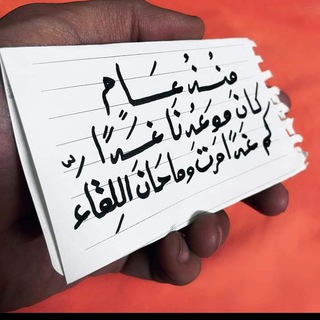 مُنْذُ عَــام
كَانَ مَوعِدُنَا غَــدًا
كم غَدًا مَرَت وما حَانَ اللِقَاء